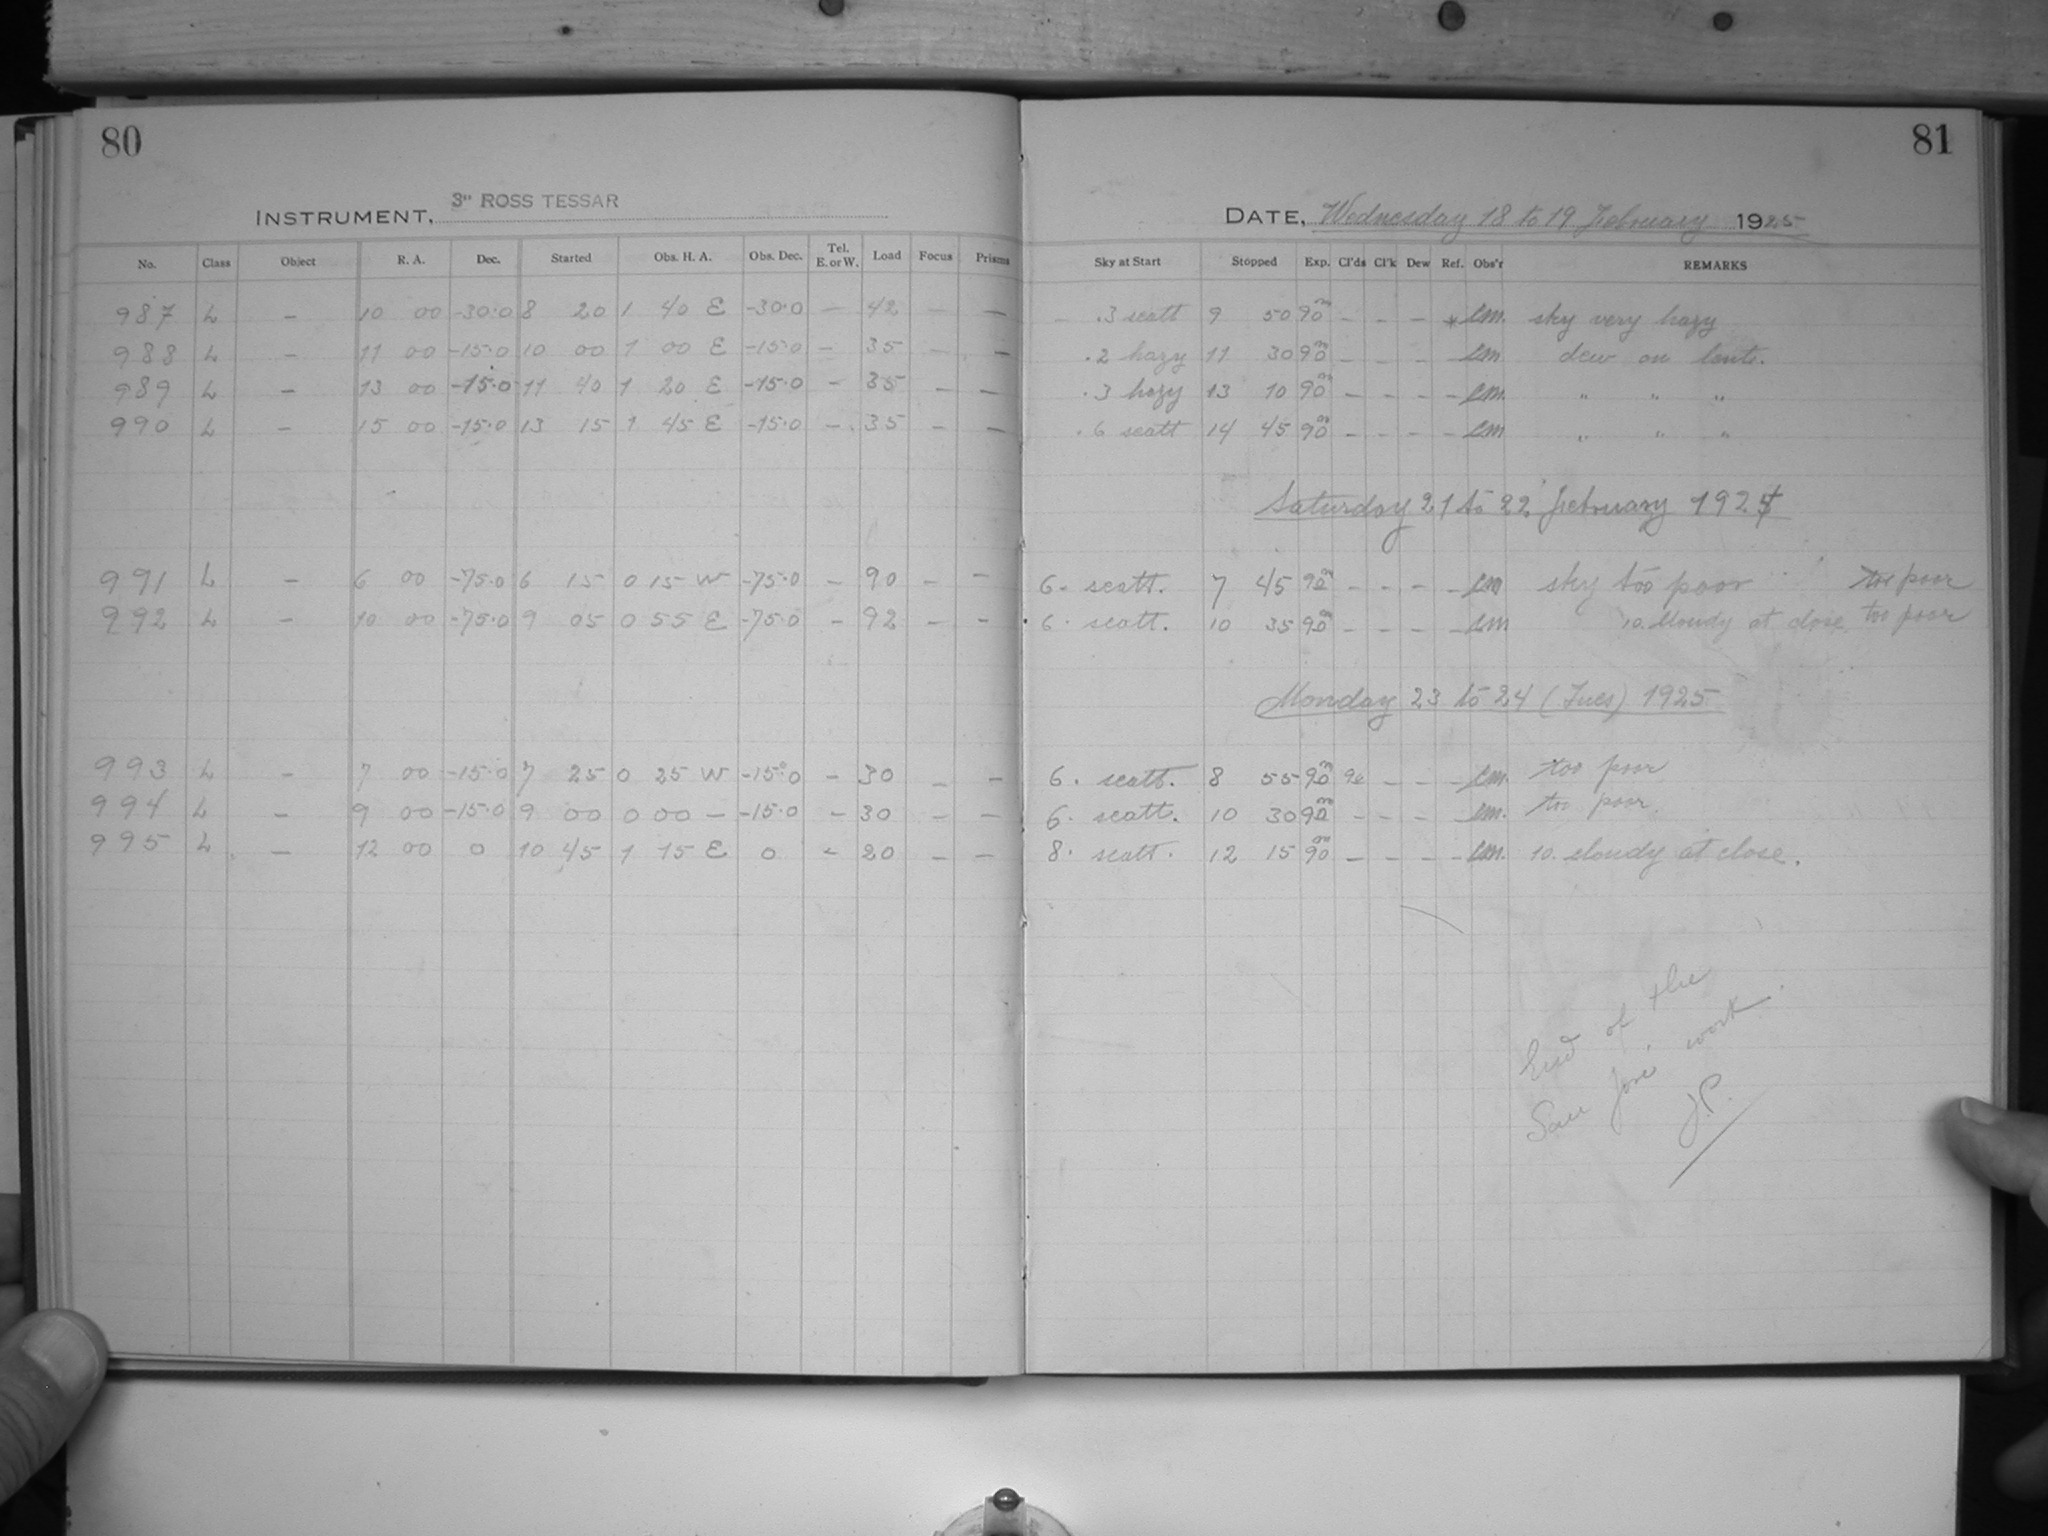 80
INSTRUMENT, 3" ROSS TESSAR
No. Class Object R. A. Dec. Started Obs. H. A. Obs. Dec. Tel. E. or W. Load Focus Prisms
987 L – 10 00 -30.0 8 20 1 40 E -30.0 – 42 – –
988 L – 11 00 -15.0 10 00 1 00 E -15.0 – 35 – –
989 L – 13 00 -15.0 11 40 1 20 E -15.0 – 35 – –
990 L – 15 00 -15.0 13 15 1 45 E -15.0 – 35 – –
991 L – 6 00 -75.0 6 15 0 15 W -75.0 – 90 – –
992 L – 10 00 -75.0 9 05 0 55 E -75.0 – 92 – –
993 L – 7 00 -15.0 7 25 0 25 W -15.0 – 30 – –
994 L – 9 00 -15.0 9 00 0 00 – -15.0 – 30 – –
995 L – 12 00 0 10 45 1 15 E 0 – 20 – –
81
DATE, Wednesday 18 to 19 February 1925
Sky at Start Stopped Exp. Cl'ds Cl'k Dew Ref. Obs'r REMARKS
.3 scatt 9 50 90m – – – * LM. sky very hazy
.2 hazy 11 30 90m – – – LM dew on lents.
.3 hazy 13 10 90m – – – – LM. " " "
.6 scatt 14 45 90m – – – – LM " " "
Saturday 21 to 22 February 1925
6. scatt. 7 45 90m – – – – LM sky too poor too poor
6. scatt. 10 35 90m – – – – LM 10. cloudy at close. too poor
Monday 23 to 24 (Tues) 1925
6. scatt. 8 55 90m – – – LM. too poor
6. scatt. 10 30 90m – – – – LM. too poor.
8. scatt. 12 15 90m – – – – LM. 10. cloudy at close.
End of the
San José work.
J.P.